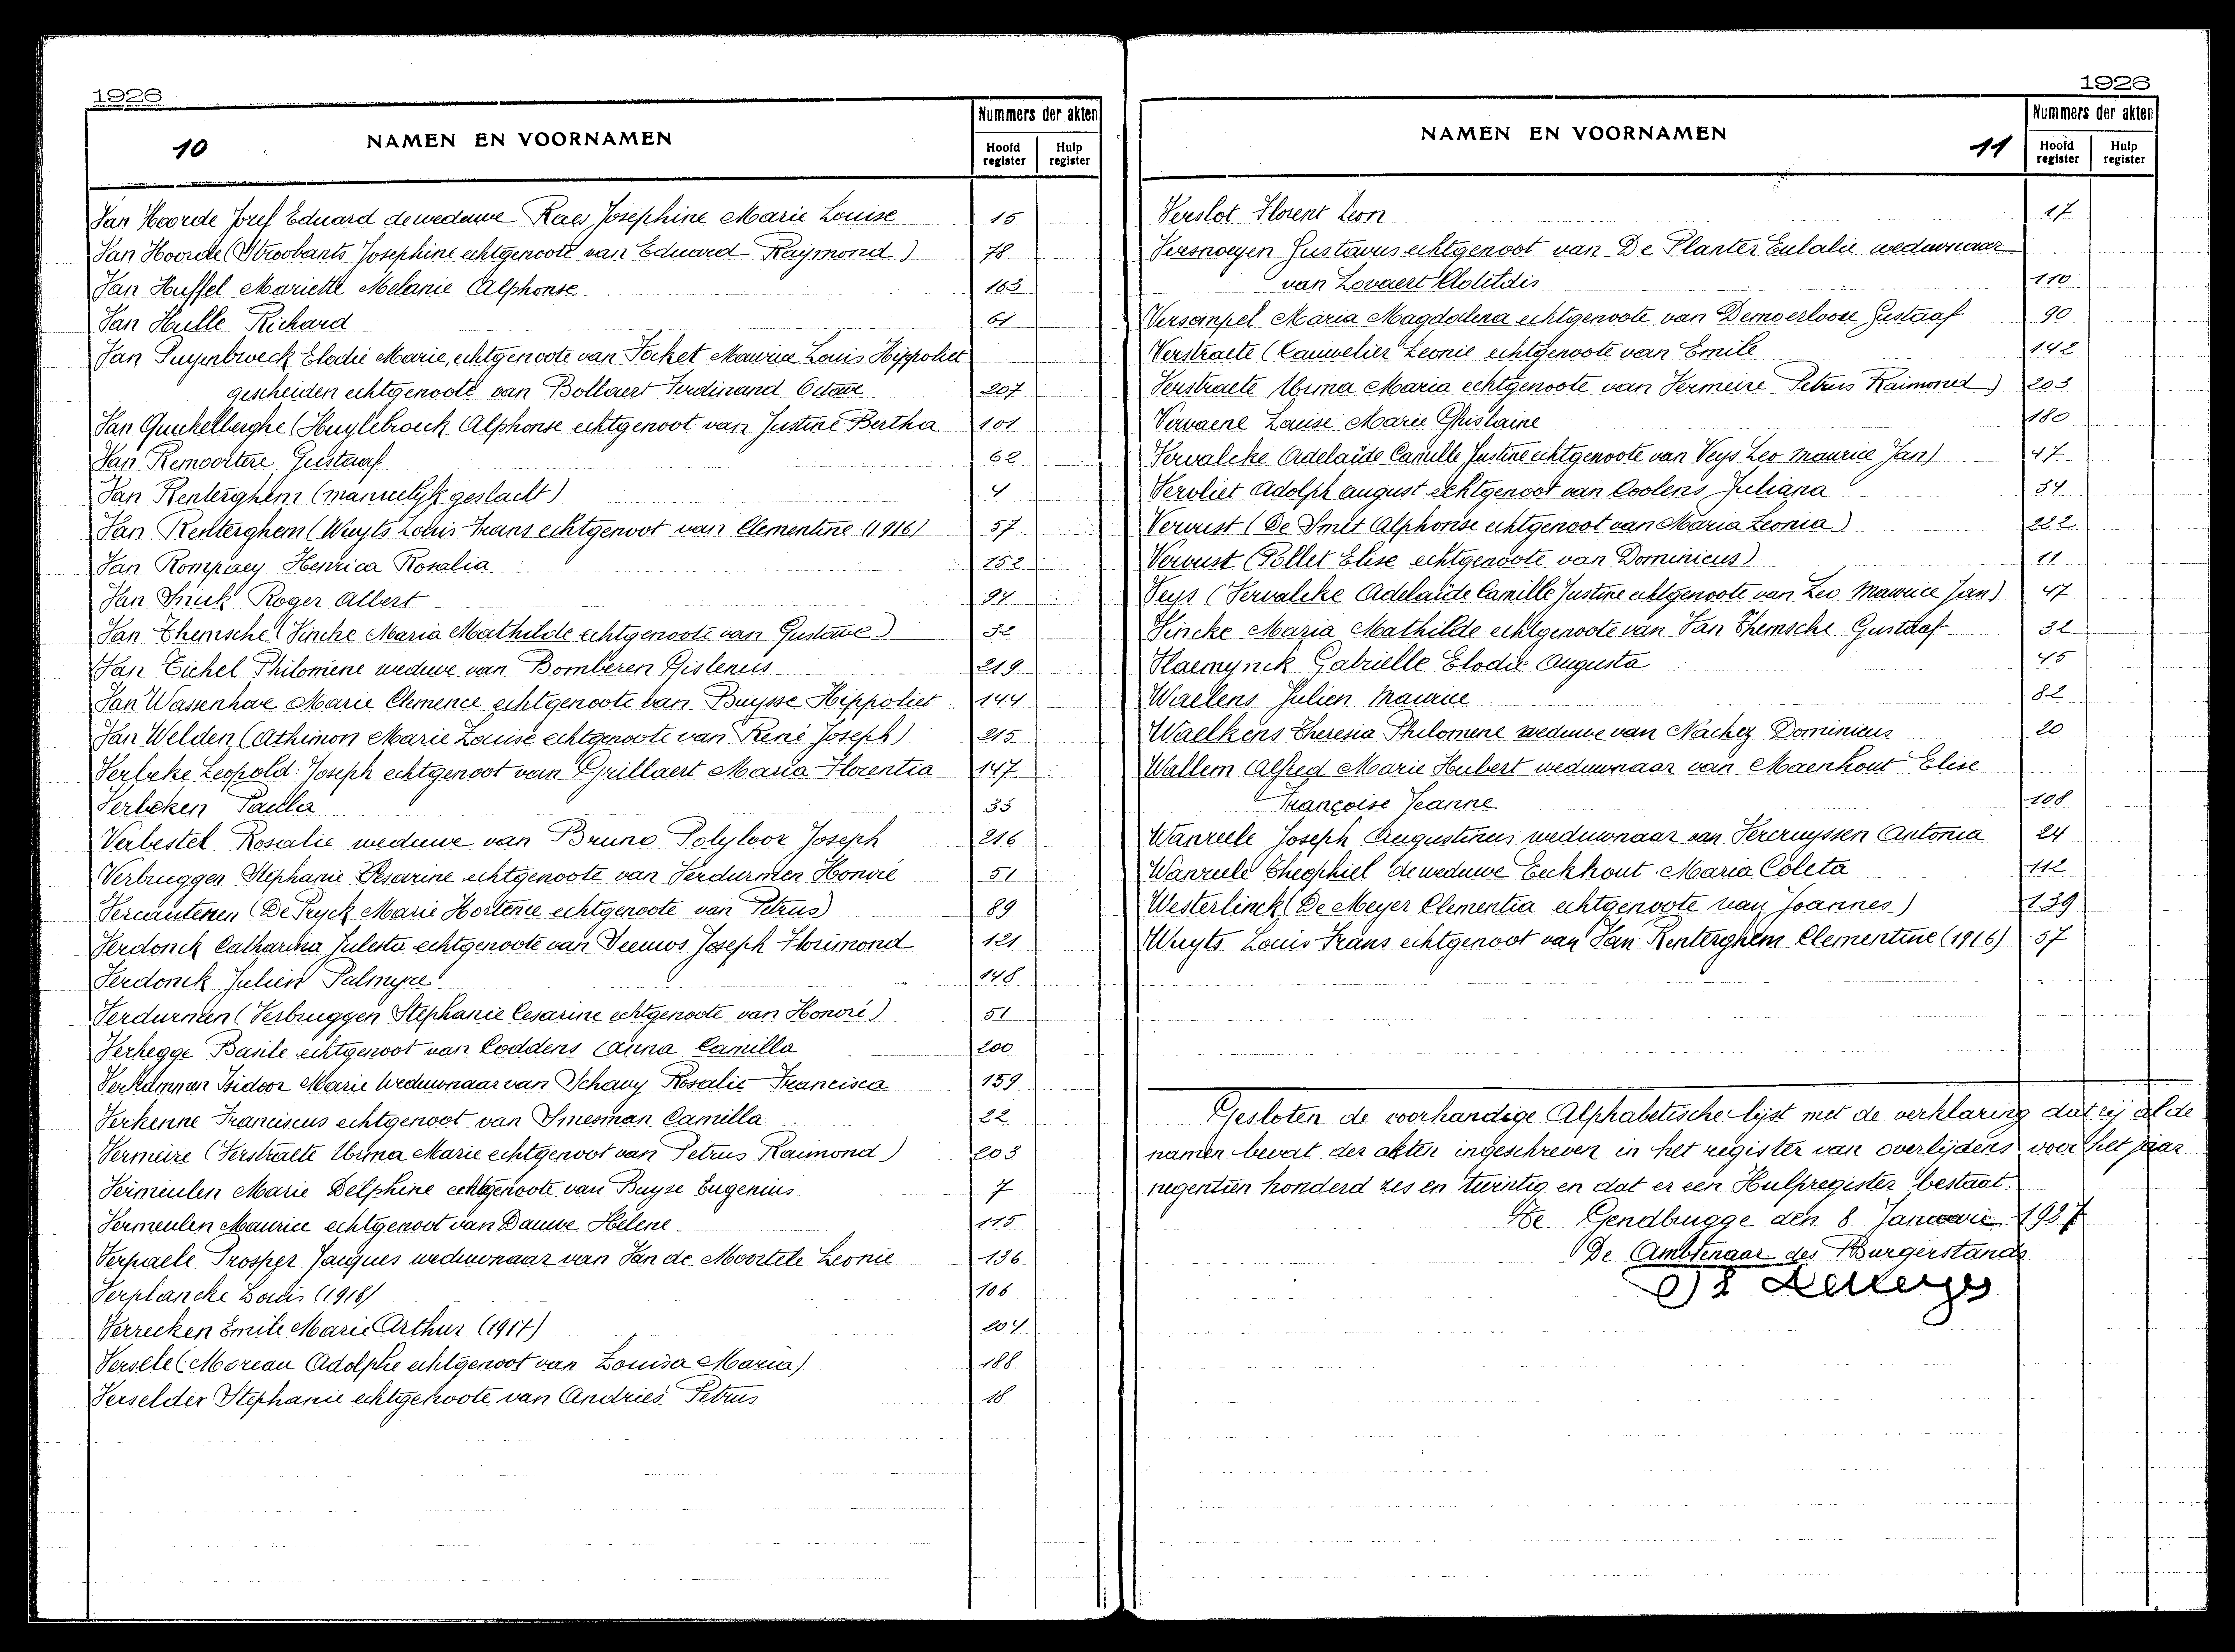 1926
10
NAMEN EN VOORNAMEN
Nummers der akten
Hoofd register
Hulp register
Van Hoorde Jozef Eduard deweduwe Raes Josephine Marie Louise 15
Van Hoorde (Stroobants Josephine echtgenoote van Eduard Raymond) 78
Van Huffel Mariette Melanie Alphonse 163
Van Hulle Richard 61
Van Puyenbroeck Elodie Marie, echtgenoote van Focket Maurice Louis Hippoliet
gescheiden echtgenoote van Bollaert Ferdinand Octave 207
Van Quickelberghe (Huylebroeck Alphonse echtgenoot van Justine Bertha 101
Van Remoortere Gustaaf 62
Van Renterghem (mannelijk geslacht) 4
Van Renterghem (Wuyts Louis Frans echtgenoot van Clementine (1916) 57
Van Rompaey Henrica Rosalia 152
Van Roger Albert 94
Van Themsche (Vincke Maria Mathilde echtgenoote van Gustave) 32
Van Eichel Philomene weduwe van Bomberen Gislenus 219
Van Wassenhove Marie Clemence echtgenoote van Buysse Hippoliet 144
Van Welden (Cathimon Marie Louise echtgenoote van René Joseph) 215
Verbeke Leopold Joseph echtgenoot van Grillaert Maria Florentia 147
Verbeken Paula 33
Verbestel Rosalie weduwe van Bruno Polyloor Joseph 216
Verbruggen Stephanie Cesarine echtgenoote van Verdurmen Honoré 51
Vercauteren (De Pryck Marie Hortence echtgenoote van Petrus) 89
Verdonck Catharina Julesta echtgenoote van Joseph Florimond 121
Verdonck Julien Palmyre 148
Verdurmen (Verbruggen Stephanie Cesarine echtgenoote van Honoré) 51
Verhegge Basile echtgenoot van Coddens Anna Camilla 200
Isidoor Marie Weduwnaar van Schauy Rosalie Francisca 159
Verkenne Franciscus echtgenoot van Smesman Camilla 22
Vermeire (Verstraete Urma Marie echtgenoot van Petrus Raimond) 203
Vermeulen Marie Delphine echtgenoote van Buyse Eugenius 7
Vermeulen Maurice echtgenoot van Dauwe Helene 115
Verpaele Prosper Jacques weduwnaar van Van de Moortele Leonie 136
Verplancke Louis (1918) 106
Verrecken Emile Marie Arthur (1917) 204
Versele (Moreau Adolphe echtgenoot van Louisa Maria) 188
Verselder Stephanie echtgenoote van Andries Petrus 18
1926
NAMEN EN VOORNAMEN
11
Nummers der akten
Hoofd register
Hulp register
Verslot Florent Leon 17
Versnoeyen Gustavus echtgenoot van De Planter Eulalie weduwnaar
van Lovaert Clotildis 110
Versompel Maria Magdalena echtgenoote van Demoerloose Gustaaf 90
Verstraete (Cauwelier Leonie echtgenoote van Emile 142
Verstraete Urma Maria echtgenoote van Vermeire Petrus Raimond) 203
Vervaene Louise Marie Ghislaine 180
Vervalcke Adelaïde Camille Justine echtgenoote van Veys Leo Maurice Jan) 47
Vervliet Adolph August echtgenoot van Coolens Juliana 54
Vervust (De Smet Alphonse echtgenoot van Maria Leonia) 222
Vervust (Pollet Elise echtgenoote van Dominicus) 11
Veys (Vervalcke Adelaïde Camille Justine echtgenoote van Leo Maurice Jan) 47
Vincke Maria Mathilde echtgenoote van Van Themsche Gustaaf 32
Vlaemynck Gabrielle Elodie Augusta 45
Waelens Julien Maurice 82
Waelkens Theresia Philomene weduwe van Nachez Dominicus 20
Wallem Alfred Marie Hubert weduwnaar van Maenhout Elise
Françoise Jeanne 108
Wanzeele Joseph Augustinus weduwnaar van Vercruyssen Antonia 24
Wanzeele Theophiel deweduwe Eeckhout Maria Coleta 112
Westerlinck (De Meyer Clementia echtgenoote van Joannes) 139
Wuyts Louis Frans echtgenoot van Van Renterghem Clementine (1916) 57
Gesloten de voorhandige Alphabetische lijst met de verklaring dat zij al de
namen bevat der akten ingeschreven in het register van overlijdens voor het jaar
negentien honderd zes en twintig en dat er een Hulpregister bestaat.
Te Gendbrugge den 8 Januarie 1927
De Ambtenaar des Burgerstands